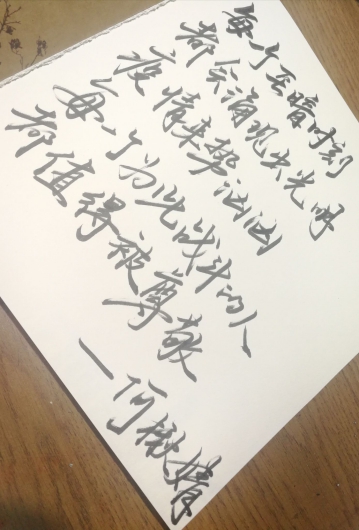 每个至暗时刻
都会涌现出光明
疫情来势汹汹
每一个为此战斗的人
都值得被尊敬
一何楸婧